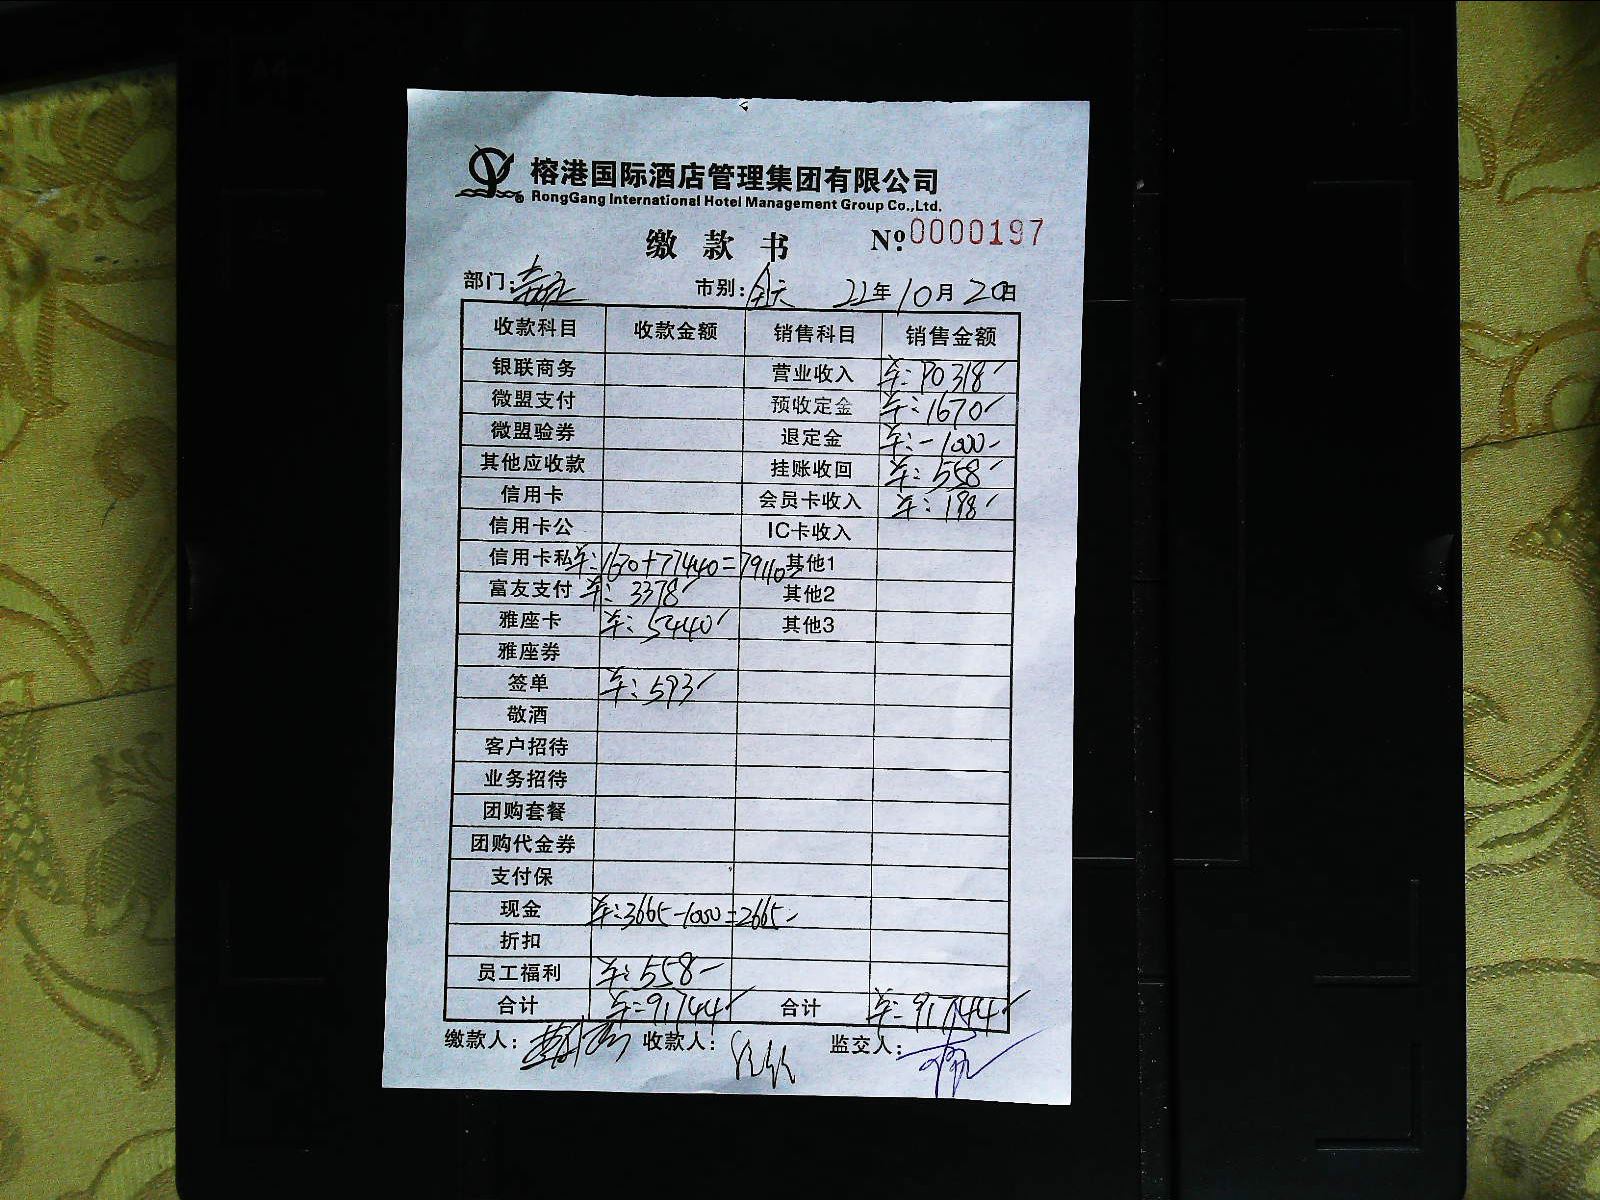 榕港国际酒店管理集团有限公司
RongGang International Hotel Management Group Co.,Ltd.
缴款书 Nº 0000197
部门: 市别:全天 22年10月20日
收款科目 收款金额 销售科目 销售金额
银联商务 营业收入 ¥:90318
微盟支付 预收定金 ¥:1670
微盟验券 退定金 ¥:-1000
其他应收款 挂账收回 ¥:558
信用卡 会员卡收入 ¥:198
信用卡公 IC卡收入
信用卡私 ¥:1670+77440=79110 其他1
富友支付 ¥:3378 其他2
雅座卡 ¥:5440 其他3
雅座券
签单 ¥:593
敬酒
客户招待
业务招待
团购套餐
团购代金券
支付保
现金 ¥:3665-1000=2665
折扣
员工福利 ¥:558
合计 ¥:91744 合计 ¥:91744
缴款人: 收款人: 监交人: